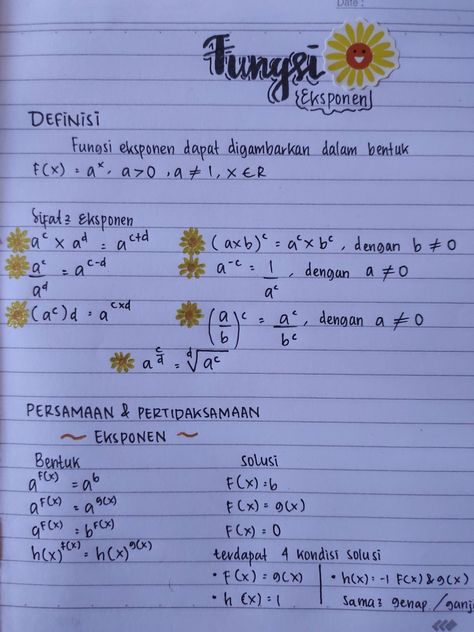 Date :
Fungsi
{Eksponen}
DEFINISI
Fungsi eksponen dapat digambarkan dalam bentuk
F(x) = aˣ, a>0 , a ≠ 1, x ∈ R
Sifat² Eksponen
a^c x a^d = a^(c+d)
(axb)^c = a^c x b^c , dengan b ≠ 0
a^c/a^d = a^(c-d)
a^(-c) = 1/a^c , dengan a ≠ 0
(a^c)d = a^(cxd)
(a/b)^c = a^c/b^c , dengan a ≠ 0
a^(c/d) = ᵈ√(a^c)
PERSAMAAN & PERTIDAKSAMAAN
~ EKSPONEN ~
Bentuk
solusi
a^F(x) = a^b
F(x) = b
a^F(x) = a^g(x)
F(x) = g(x)
a^F(x) = b^F(x)
F(x) = 0
h(x)^f(x) = h(x)^g(x)
terdapat 4 kondisi solusi
• F(x) = g(x)
• h(x) = -1 F(x) & g(x)
• h (x) = 1
sama² genap / ganji